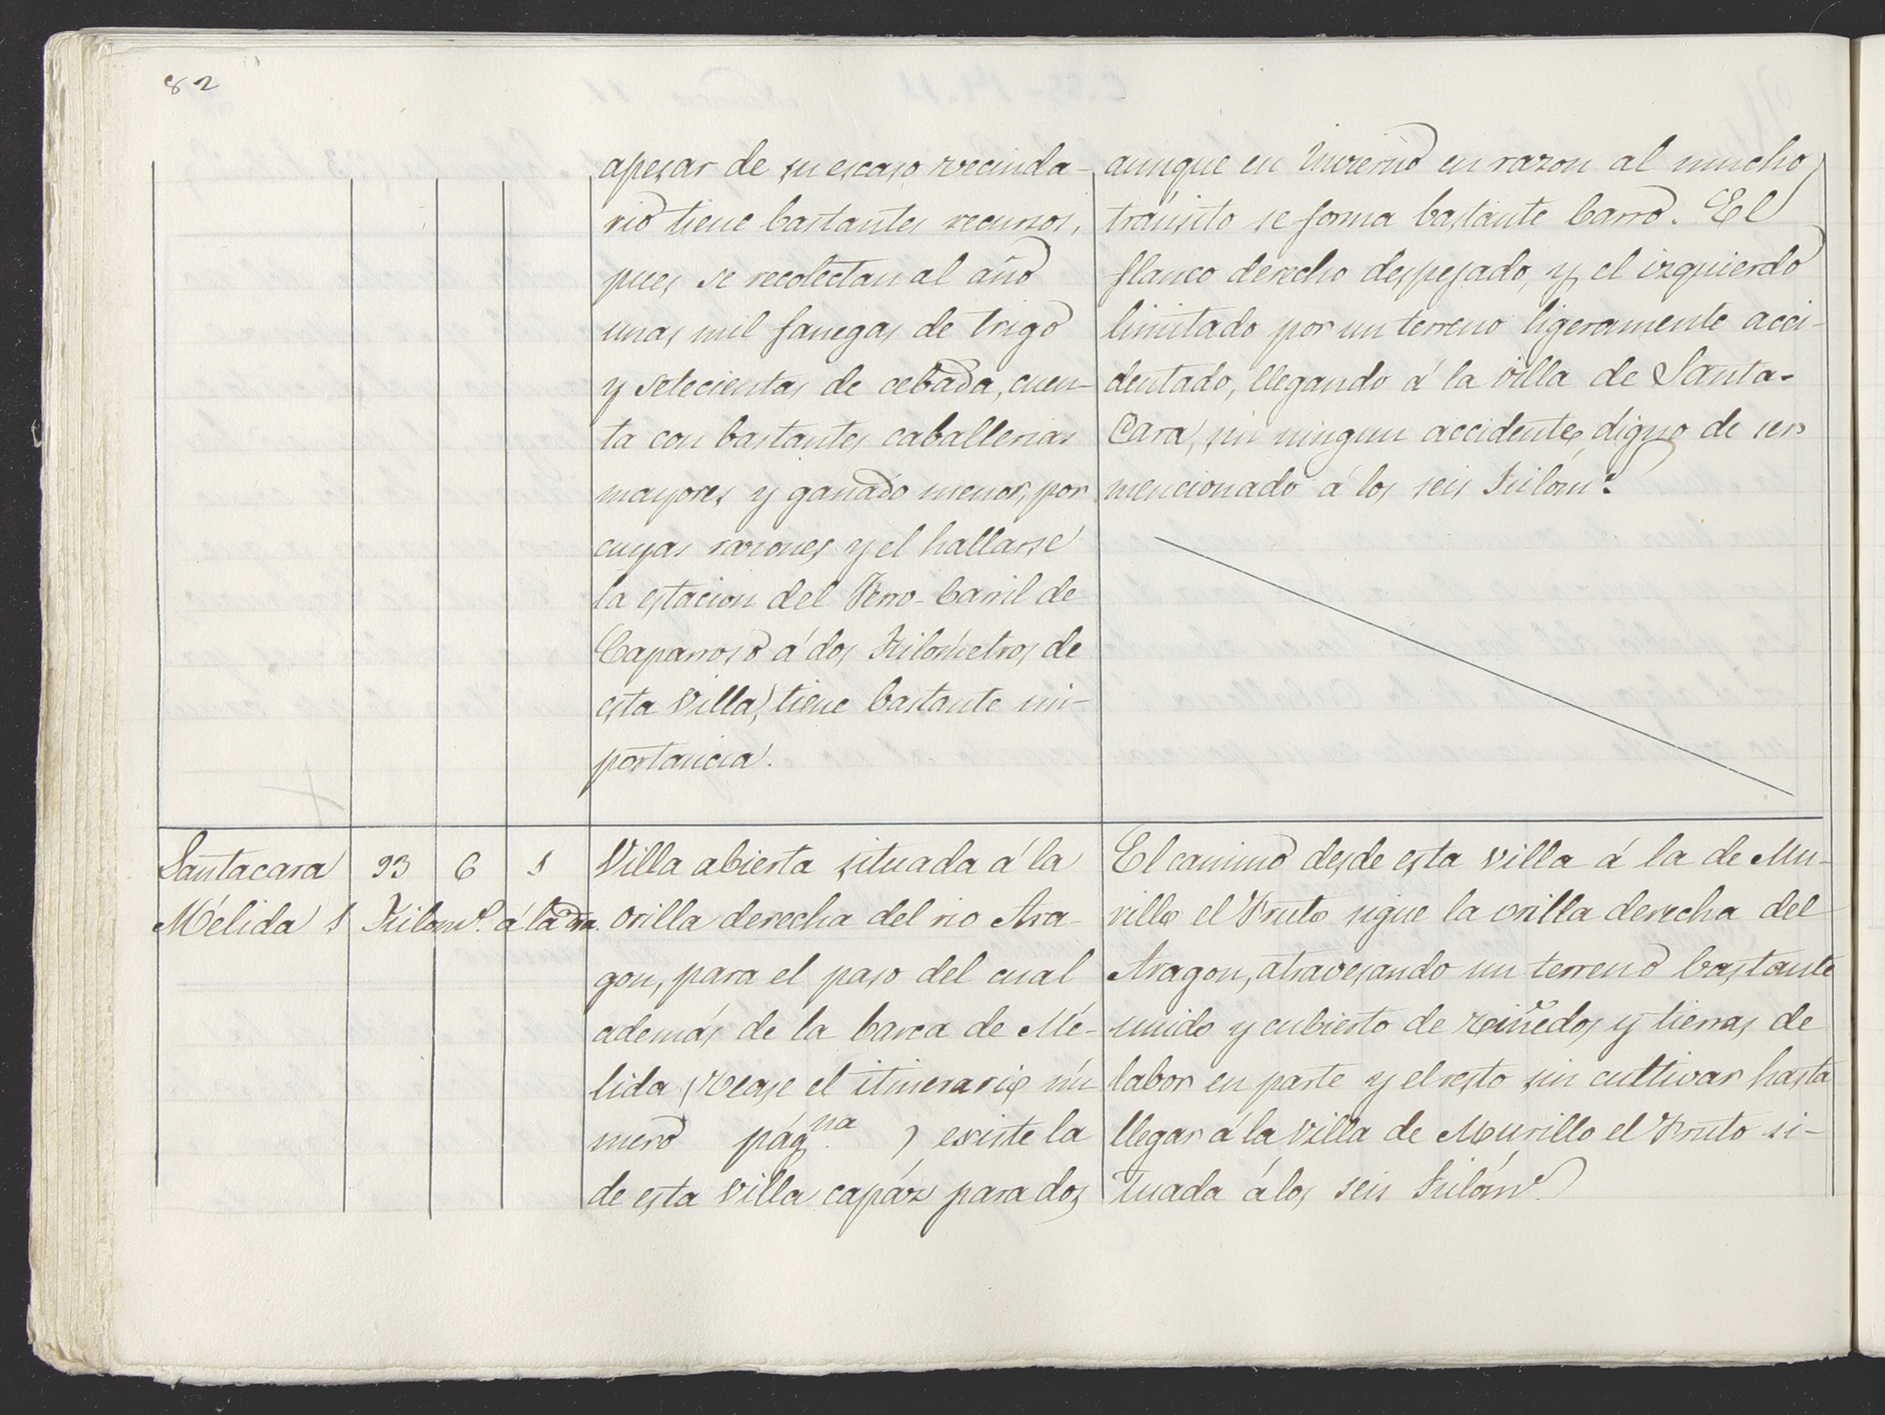 82
apesar de su escaso vecinda-
rio tiene bastantes recursos,
pues se recolectan al año
unas mil fanegas de trigo
y setecientas de cebada, cuen-
ta con bastantes caballerias
mayores y ganado menor, por
cuyas razones y el hallarse
la estacion del Ferro-Carril de
Caparroso á dos Kilómetros de
esta Villa, tiene bastante im-
portancia.
aunque en Invierno en razon al mucho
tránsito se forma bastante barro. El
flanco derecho despejado, y el izquierdo
limitado por un terreno ligeramente acci-
dentado, llegando á la villa de Santa-
Cara, sin ningun accidente digno de ser
mencionado á los seis Kilóms.
Santacara 93 6 1
Mélida 1 Kilomo. á la dra.
Villa abierta situada á la
orilla derecha del rio Ara-
gon, para el paso del cual
además de la barca de Mé-
lida (vease el itinerario nú-
mero págna. ) existe la
de esta Villa capáz para dos
El camino desde esta Villa á la de Mu-
rillo el Fruto sigue la orilla derecha del
Aragon, atravesando un terreno bastante
unido y cubierto de viñedos y tierras de
labor en parte y el resto sin cultivar hasta
llegar á la Villa de Murillo el Fruto si-
tuada á los seis Kilóms.